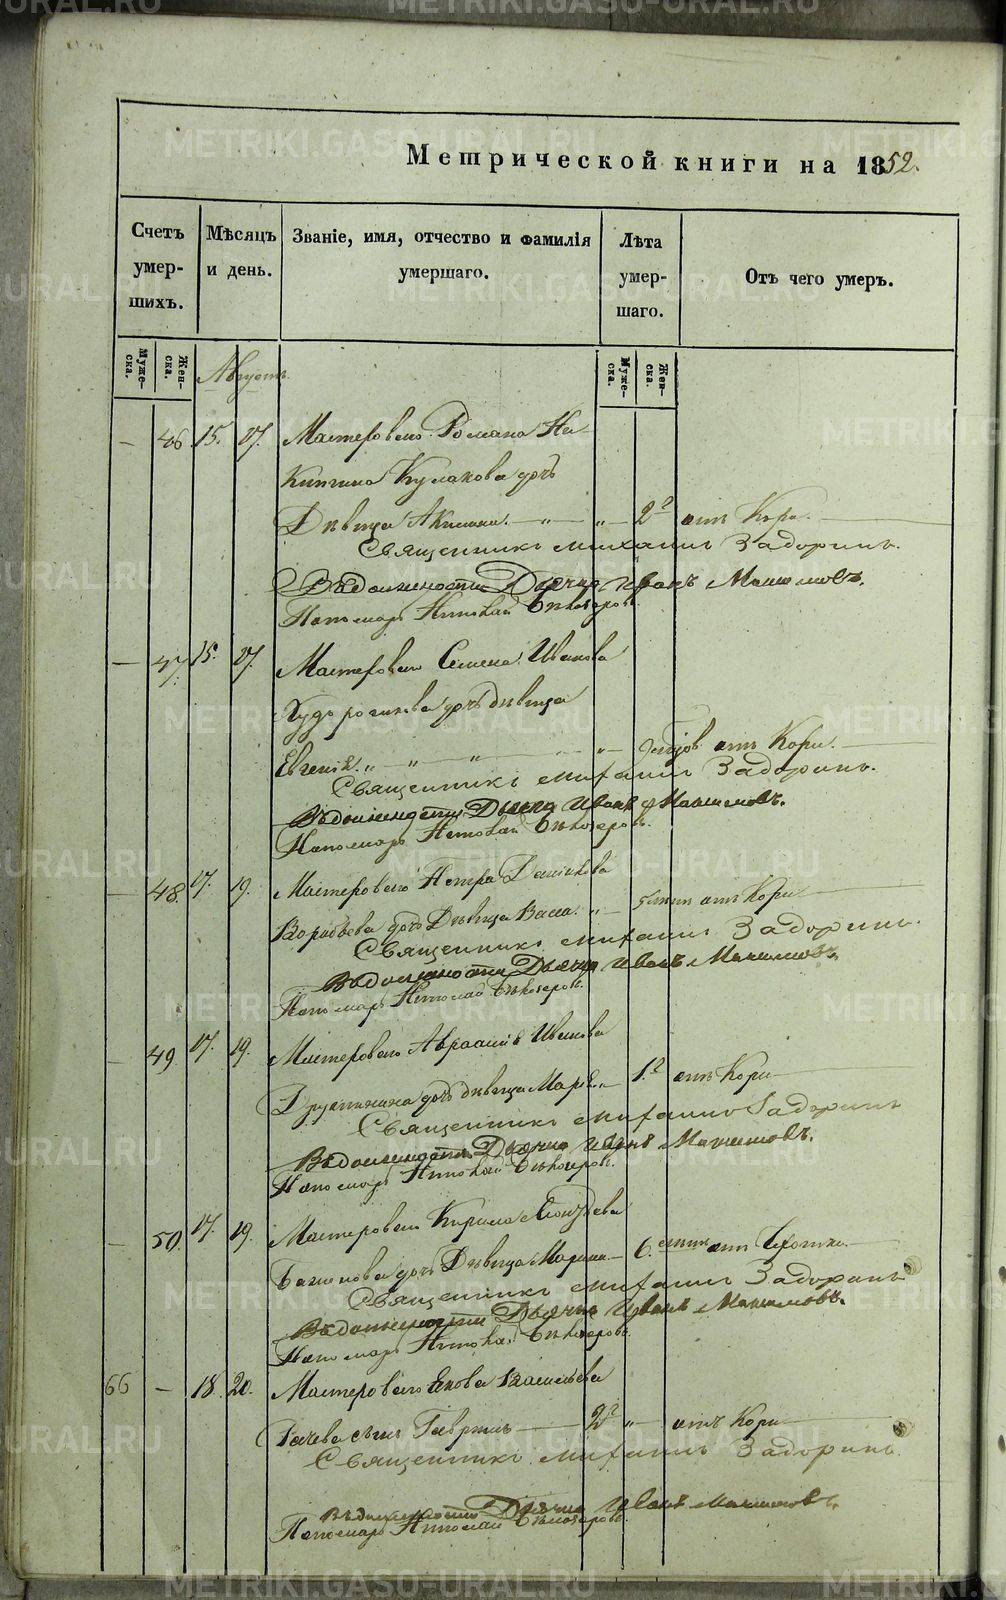 Метрической книги на 1852.
Счетъ умер- шихъ.
Мѣсяцъ и день.
Званіе, имя, отчество и фамилія умершаго.
Лѣта умер- шаго.
Отъ чего умеръ.
Муже- ска.
Жен- ска.
Августъ.
Муже- ска.
Жен- ска.
— 46 15. 17. Мастероваго Романа Ни-
китина Кулакова дочь
Дѣвица Акилина. — " — " — 2 г. отъ Кори.
Священникъ Михаилъ Задоринъ.
Въ должности Дьячка Иванъ
Пономарь Николай Бѣлозеровъ.
— 47 15. 17. Мастероваго Семена Иванова
дочь дѣвица
Евгенія. " " " — " — отъ Кори.
Священникъ Михаилъ Задоринъ.
Въ должности Дьячка Иванъ
Пономарь Николай Бѣлозеровъ.
— 48. 17. 19. Мастероваго Петра
Воробьева дочь Дѣвица Васса. " — отъ Кори
Священникъ Михаилъ Задоринъ.
Въ должности Дьячка Иванъ
Пономарь Николай Бѣлозеровъ.
— 49 17. 19. Мастероваго Авраамія Иванова
дочь дѣвица Марія. " — 1. г. отъ Кори
Священникъ Михаилъ Задоринъ
Въ должности Дьячка Иванъ
Пономарь Николай Бѣлозеровъ.
— 50. 17. 19. Мастероваго Кирила
дочь Дѣвица Марина — 6. отъ
Священникъ Михаилъ Задоринъ
Въ должности Дьячка Иванъ
Пономарь Николай Бѣлозеровъ.
66 — 18. 20. Мастероваго Якова Васильева
сынъ Гаврилъ — 2 г. " — отъ Кори
Священникъ Михаилъ Задоринъ.
Въ должности Дьячка Иванъ
Пономарь Николай Бѣлозеровъ.
METRIKI.GASO-URAL.RU